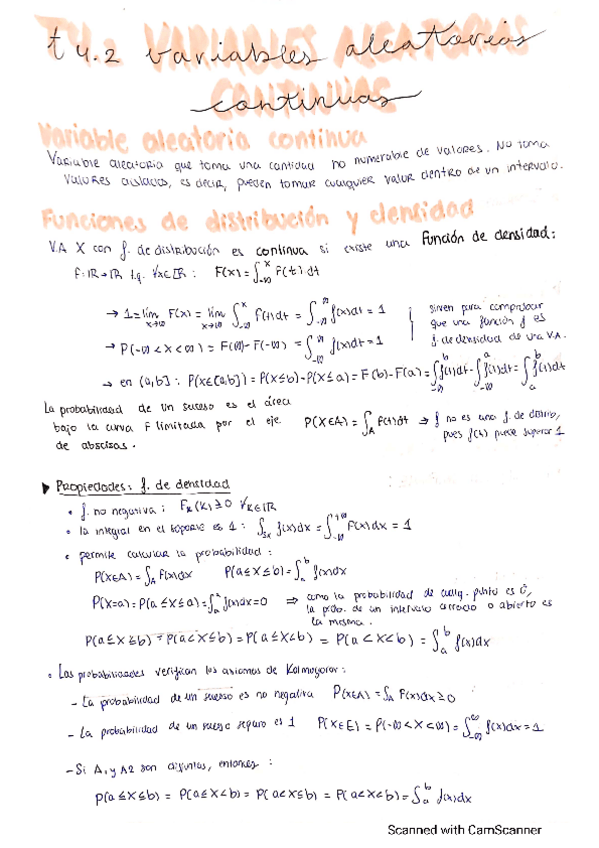 t 4.2 VARIABLES aleatorias
continuas
Variable aleatoria continua
Variable aleatoria que toma una cantidad no numerable de valores. No toma
valores aislados, es decir, pueden tomar cualquier valor dentro de un intervalo.
Funciones de distribución y densidad
V.A X con f. de distribución es continua si existe una función de densidad:
f: ℝ→ℝ t.q. ∀x∈ℝ : F(x) = ∫_{-∞}^{x} f(t) dt
→ 1 = lim_{x→∞} F(x) = lim_{x→∞} ∫_{-∞}^{x} f(t)dt = ∫_{-∞}^{∞} f(x)dt = 1
→ P(-∞ < X < ∞) = F(∞) - F(-∞) = ∫_{-∞}^{∞} f(x)dt = 1
sirven para comprobar
que una función f es
f. de densidad de una V.A.
→ en (a,b] : P(X∈(a,b]) = P(X≤b) - P(X≤a) = F(b) - F(a) = ∫_{-∞}^{b} f(t)dt - ∫_{-∞}^{a} f(t)dt = ∫_{a}^{b} f(t)dt
La probabilidad de un suceso es el área
bajo la curva F limitada por el eje
de abscisas.
P(X∈A) = ∫_A f(t)dt → f no es una f. de distrib,
pues f(x) puede superar 1
▶ Propiedades: f. de densidad
• f. no negativa : F_X(x) ≥ 0 ∀x∈ℝ
• la integral en el soporte es 1 : ∫_{Sx} f(x)dx = ∫_{-∞}^{+∞} F(x)dx = 1
• permite calcular la probabilidad :
P(X∈A) = ∫_A f(x)dx P(a≤X≤b) = ∫_{a}^{b} f(x)dx
P(X=a) = P(a≤X≤a) = ∫_{a}^{a} f(x)dx = 0 ⇒ como la probabilidad de cualq. punto es 0,
la prob. de un intervalo cerrado o abierto es
la misma.
P(a≤X≤b) = P(a<X≤b) = P(a≤X<b) = P(a<X<b) = ∫_{a}^{b} f(x)dx
• Las probabilidades verifican los axiomas de Kolmogorov :
- La probabilidad de un suceso es no negativa P(X∈A) = ∫_A F(x)dx ≥ 0
- La probabilidad de un suceso seguro es 1 P(X∈E) = P(-∞<X<∞) = ∫_{-∞}^{∞} f(x)dx = 1
- Si A1 y A2 son disjuntas, entonces :
P(a≤X≤b) = P(a≤X<b) = P(a<X≤b) = P(a<X<b) = ∫_{a}^{b} f(x)dx
Scanned with CamScanner